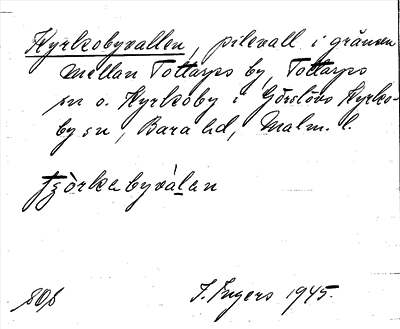 Kyrkobyvallen, pilevall i gränsen
mellan Tottarps by, Tottarps
sn o. Kyrkoby i Görslövs Kyrko-
by sn, Bara hd, Malm. l.
I. Ingers 1945.